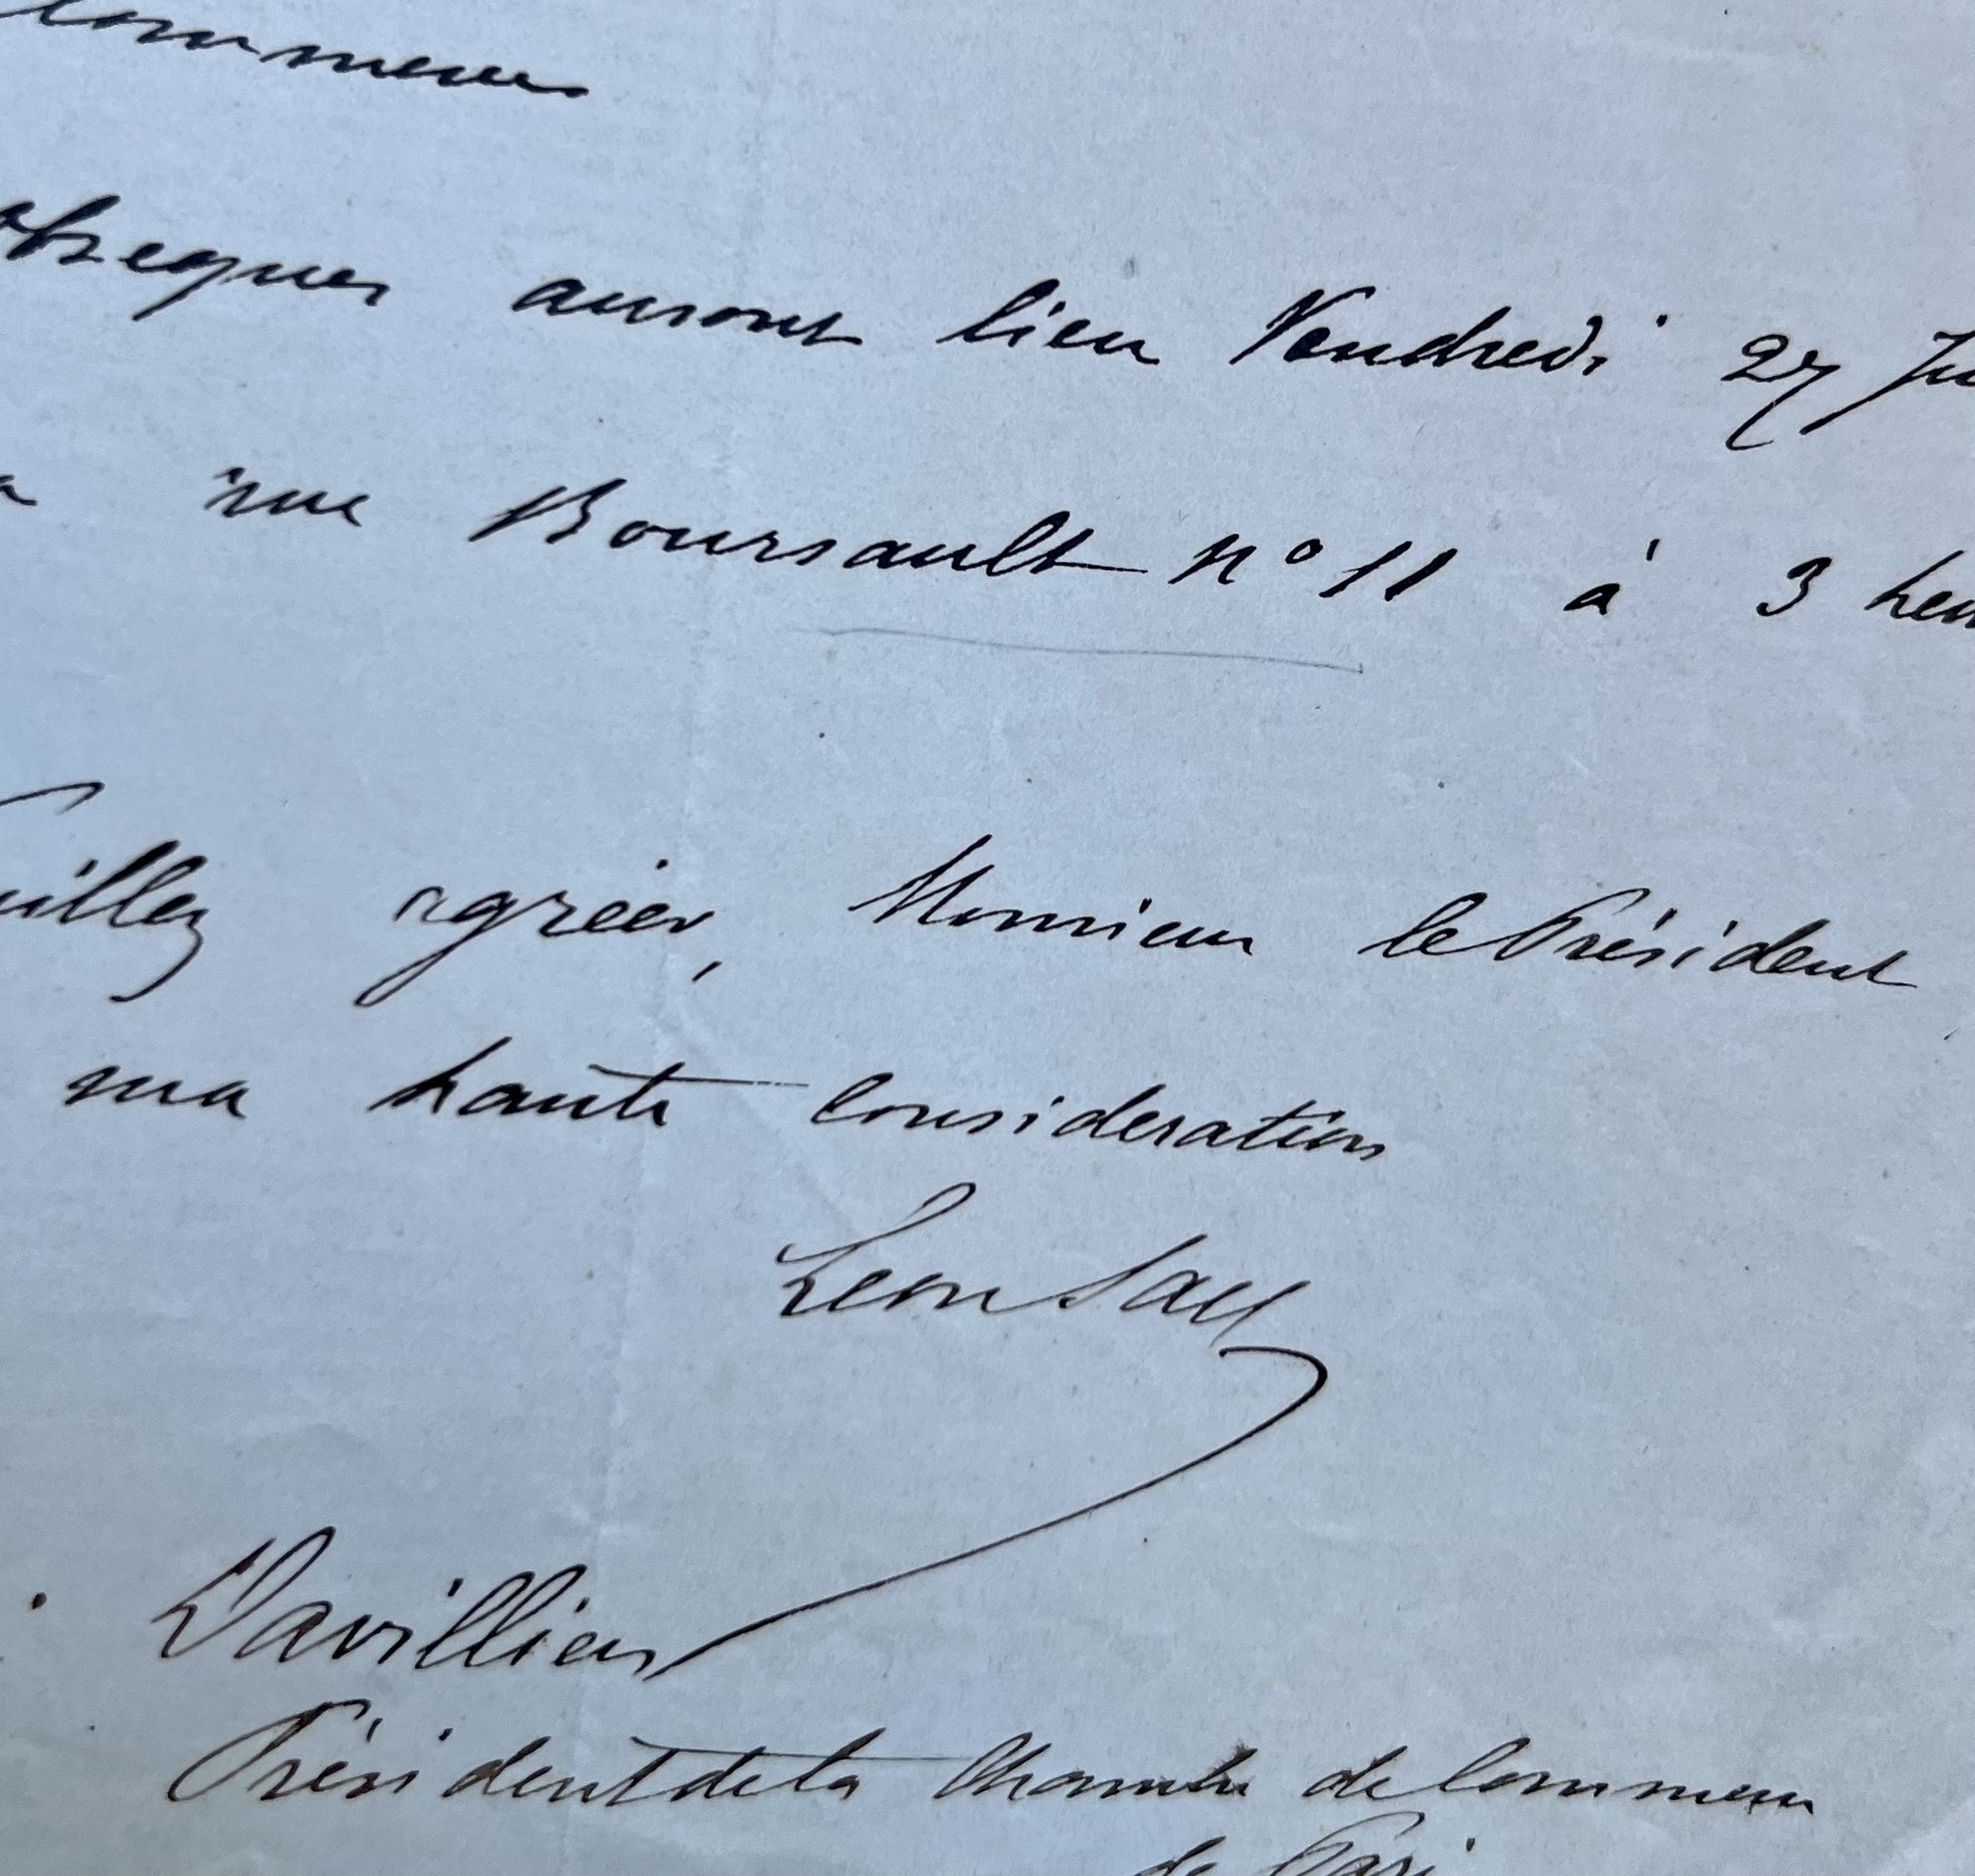 commerce
obseques auront lieu Vendredi 27 Ju
rue Boursault n° 11 à 3 heu
uillez agréer, Monsieur le Président
ma haute consideration
Leon Say
Davillier
Président de la Chambre de Commerce
de Paris